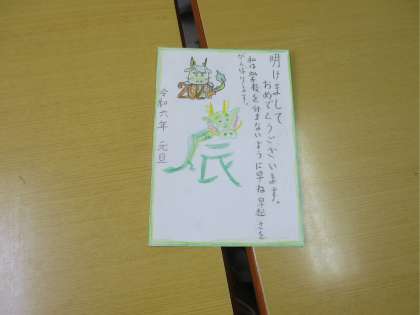 明けまして
おめでとうございます。
私は学校を休まないように早ね早起きを
がんばります。
2024
辰
令和六年 元旦